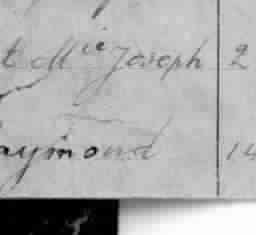 t Mie Joseph 2
aymond 14